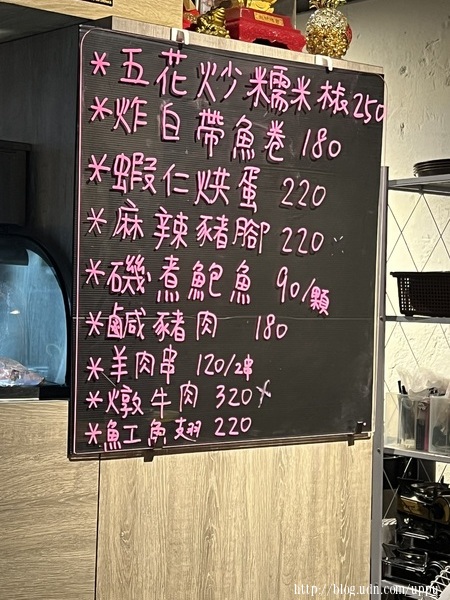 *五花炒糯米椒250
*炸白帶魚卷 180
*蝦仁烘蛋 220
*麻辣豬腳 220
*磯煮鮑魚 90/顆
*鹹豬肉 180
*羊肉串 120/2串
*燉牛肉 320
*魟魚翅 220
http://blog.udn.com/uppu